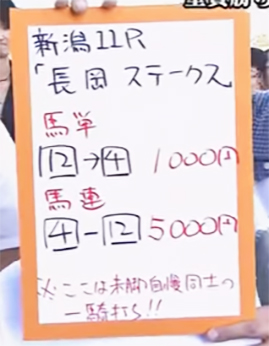 新潟11R
「長岡ステークス
馬単
12→4 1000円
馬連
4-12 5000円
※ここは末脚自慢同士の
一騎打ち!!